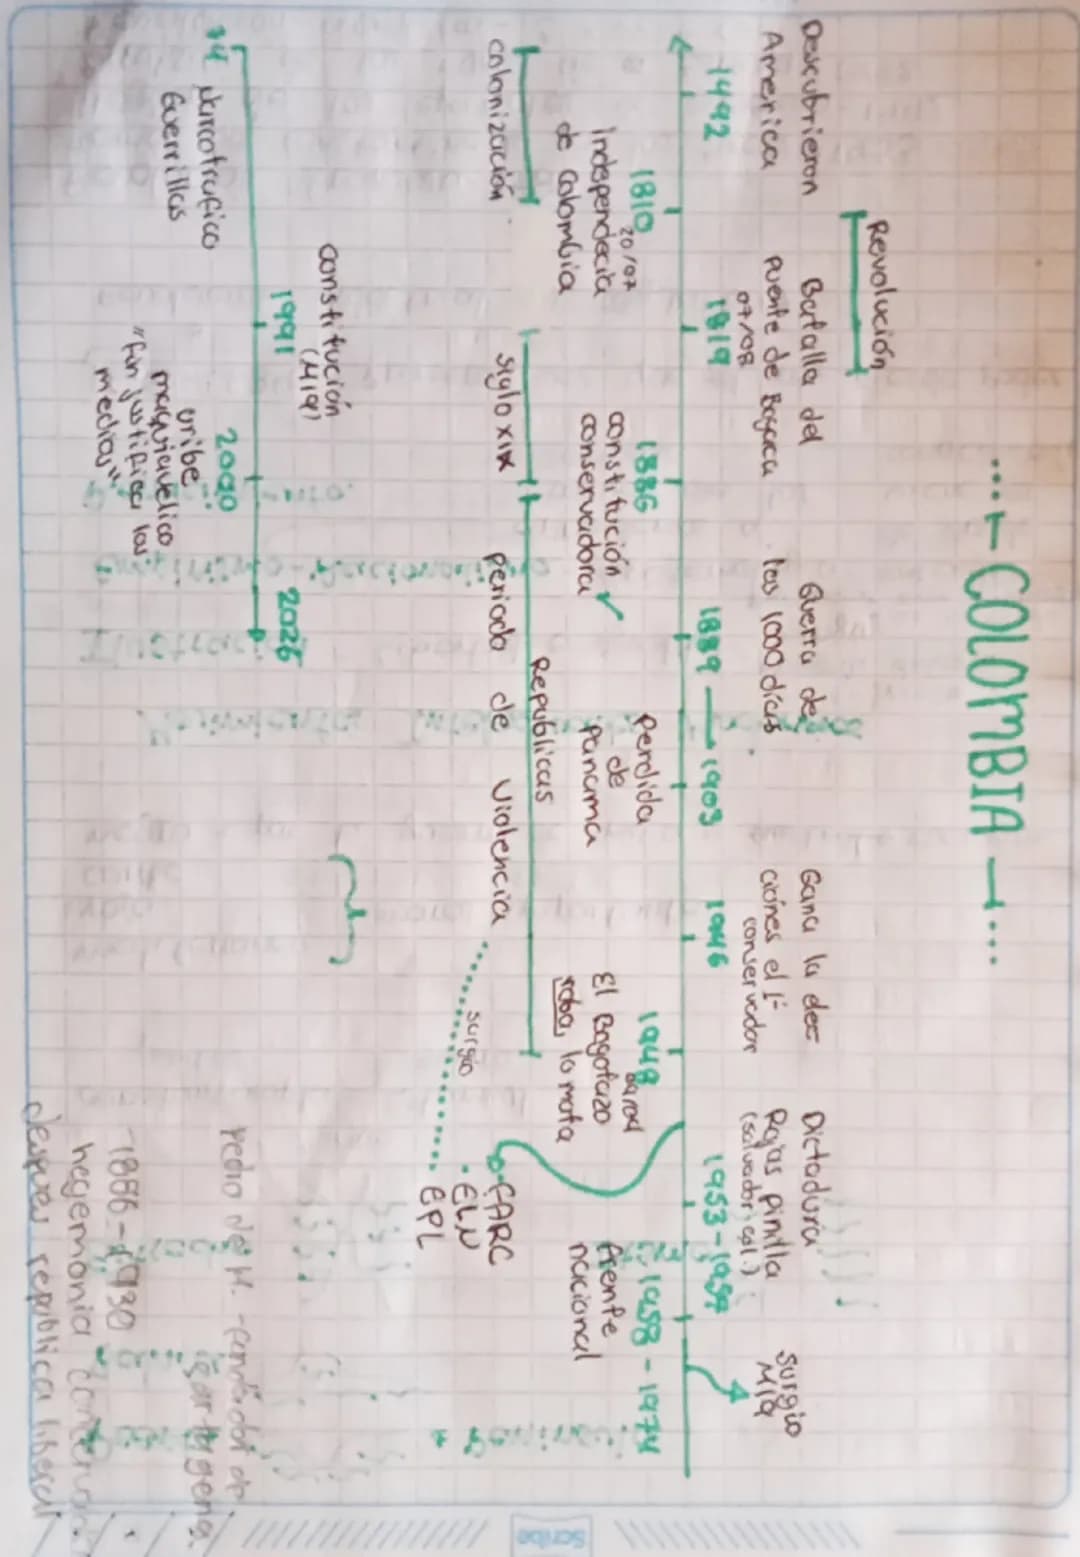 COLOMBIA
Revolución
Descubrieron
America
Batalla del
puente de Boyaca
07/08
Guerra de
los 1000 dias
Gana la elec
ciones el P
conservador
Dictadura
Rojas pinilla
(salvador col.)
surgio
M19
1492
1819
1889 — 1903
1946
1953-1957
1810
20/07
Independecia
de Colombia
1886
constitución
conservadora
Perdida
de
panama
1948
09 Abril
El Bogotazo
roba, lo mata
1958-1974
frente
nacional
colonización
siglo XIX
Republicas
periodo de violencia
surgio
FARC
ELN
EPL
constitución
(M19)
1991
2000
2026
74
Narcotrafico
Guerrillas
uribe
maquiavelico
"fin justifica los
medios"
Pedro de H. -fundador de
cartagena.
-1886-1930
hegemonia conservad
despues republica liberal
Scribe